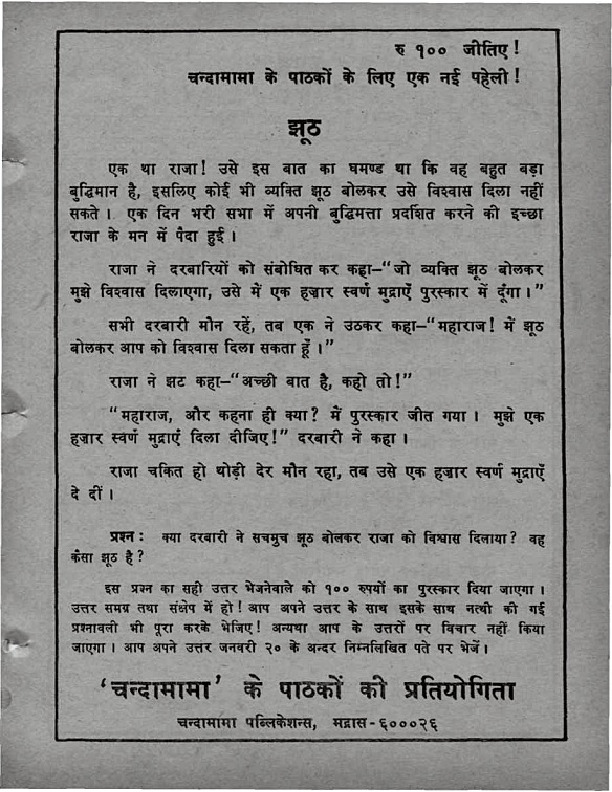 रु १०० जीतिए!
चन्दामामा के पाठकों के लिए एक नई पहेली!
झूठ
एक था राजा! उसे इस बात का घमण्ड था कि वह बहुत बड़ा
बुद्धिमान है, इसलिए कोई भी व्यक्ति झूठ बोलकर उसे विश्वास दिला नहीं
सकते। एक दिन भरी सभा में अपनी बुद्धिमत्ता प्रदर्शित करने की इच्छा
राजा के मन में पैदा हुई।
राजा ने दरबारियों को संबोधित कर कहा–“जो व्यक्ति झूठ बोलकर
मुझे विश्वास दिलाएगा, उसे में एक हज़ार स्वर्ण मुद्राएँ पुरस्कार में दूंगा।”
सभी दरबारी मौन रहें, तब एक ने उठकर कहा–“महाराज! में झूठ
बोलकर आप को विश्वास दिला सकता हूँ।”
राजा ने झट कहा–“अच्छी बात है, कहो तो!”
“महाराज, और कहना ही क्या? मैं पुरस्कार जीत गया। मुझे एक
हज़ार स्वर्ण मुद्राएँ दिला दीजिए!” दरबारी ने कहा।
राजा चकित हो थोड़ी देर मौन रहा, तब उसे एक हज़ार स्वर्ण मुद्राएँ
दे दीं।
प्रश्न : क्या दरबारी ने सचमुच झूठ बोलकर राजा को विश्वास दिलाया? वह
कैसा झूठ है?
इस प्रश्न का सही उत्तर भेजनेवाले को १०० रुपयों का पुरस्कार दिया जाएगा।
उत्तर समग्र तथा संक्षेप में हो! आप अपने उत्तर के साथ इसके साथ नत्थी की गई
प्रश्नावली भी पूरा करके भेजिए! अन्यथा आप के उत्तरों पर विचार नहीं किया
जाएगा। आप अपने उत्तर जनवरी २० के अन्दर निम्नलिखित पते पर भेजें।
‘चन्दामामा’ के पाठकों की प्रतियोगिता
चन्दामामा पब्लिकेशन्स, मद्रास-६०००२६